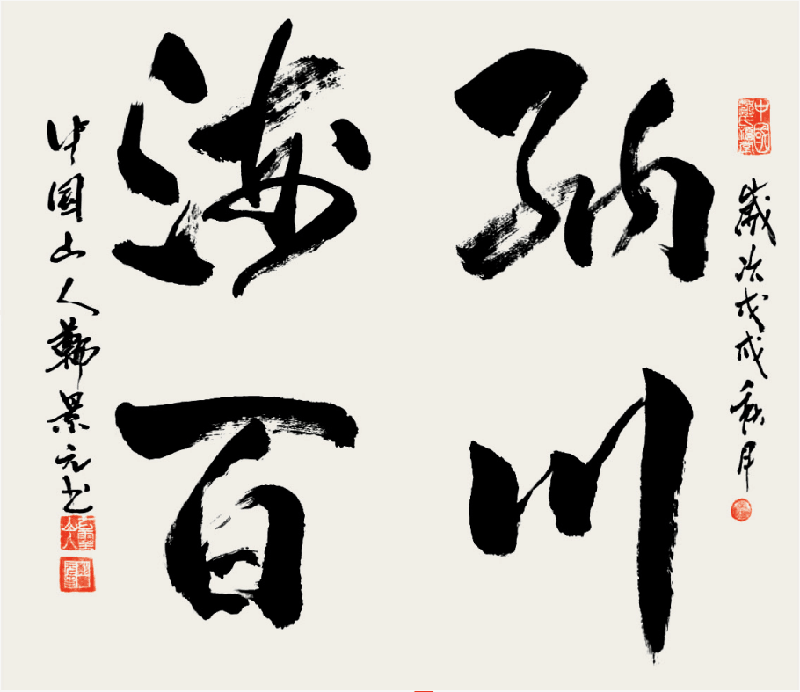 海纳
百川
歲次戊戌秋月
中国山人景元书